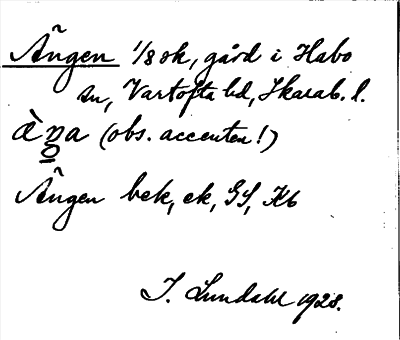 Ängen 1/8 ok, gård i Habo
sn, Vartofta hd, Skarab. l.
(obs. accenten!)
Ängen bek, ek, GS, Kb
I. Lundahl 1928.